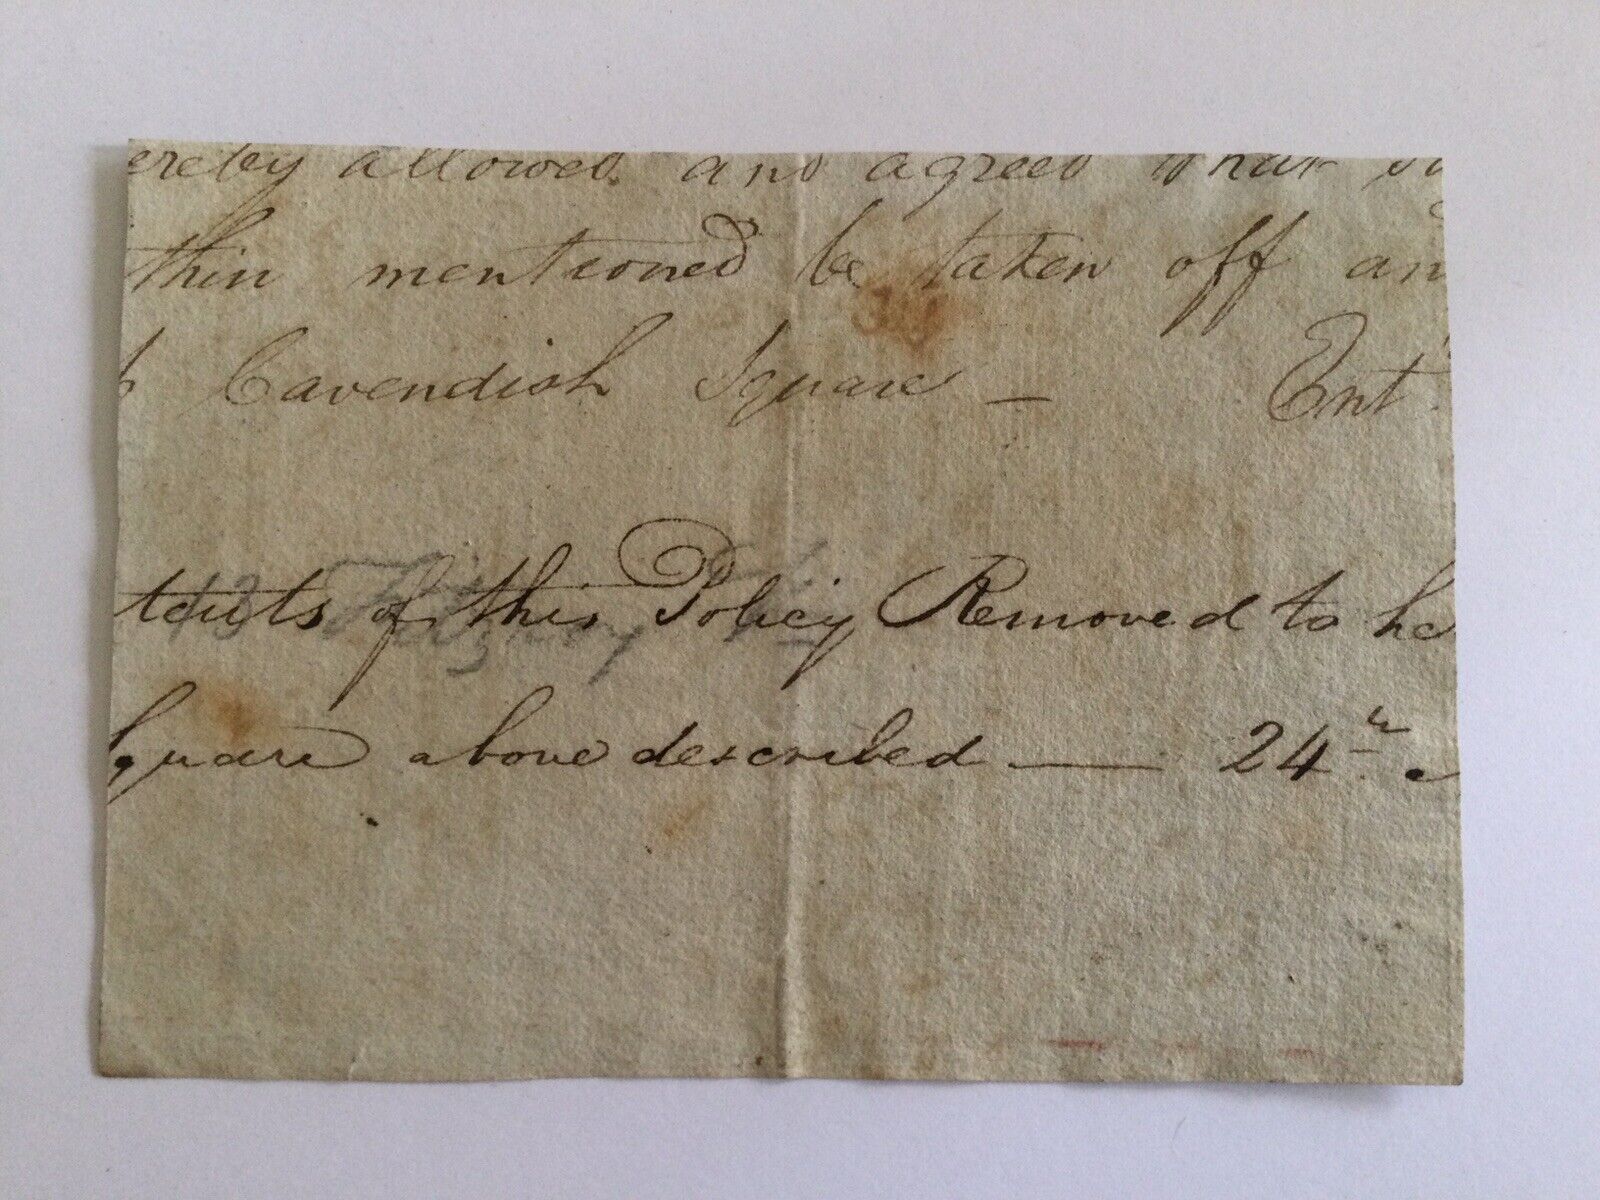 ereby allowed and agreed that
thin mentioned be taken off an
Cavendish Square — Ent
tents of this Policy Removed to he
Square above described — 24